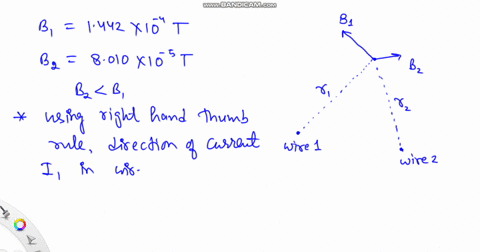 WWW.BANDICAM.COM
B₁ = 1.442 × 10⁻⁴ T
B₂ = 8.010 × 10⁻⁵ T
B₂ < B₁
* using right hand thumb
rule, direction of current
I₁ in wir
B₁
B₂
r₁
r₂
wire 1
wire 2